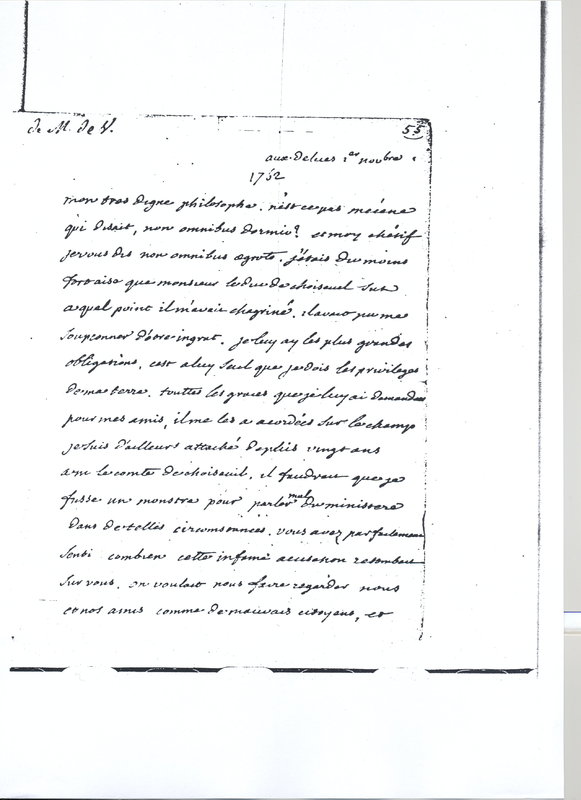 de M. de V.
55
aux delices 1er novbre
1762
mon tres digne philosophe. n'est ce pas mécene
qui disait, non omnibus dormio? et moy chétif
je vous dis non omnibus ægroto. j'étais du moins
fort aise que monsieur le duc de choiseul sut
a quel point il m'avait chagriné. il avait pu me
soupconner d'être ingrat. je luy ay les plus grandes
obligations. c'est a luy seul que je dois les privileges
de ma terre. touttes les graces que je luy ai demandées
pour mes amis, il me les a acordées sur le champ
je suis d'ailleurs attaché depuis vingt ans
a m le comte de choiseuil. il faudrait que je
fusse un monstre pour parler mal du ministere
dans de telles circonstances. vous avez parfaitement
senti combien cette infame acusation retombait
sur vous. on voulait nous faire regarder nous
et nos amis comme de mauvais citoyens, et